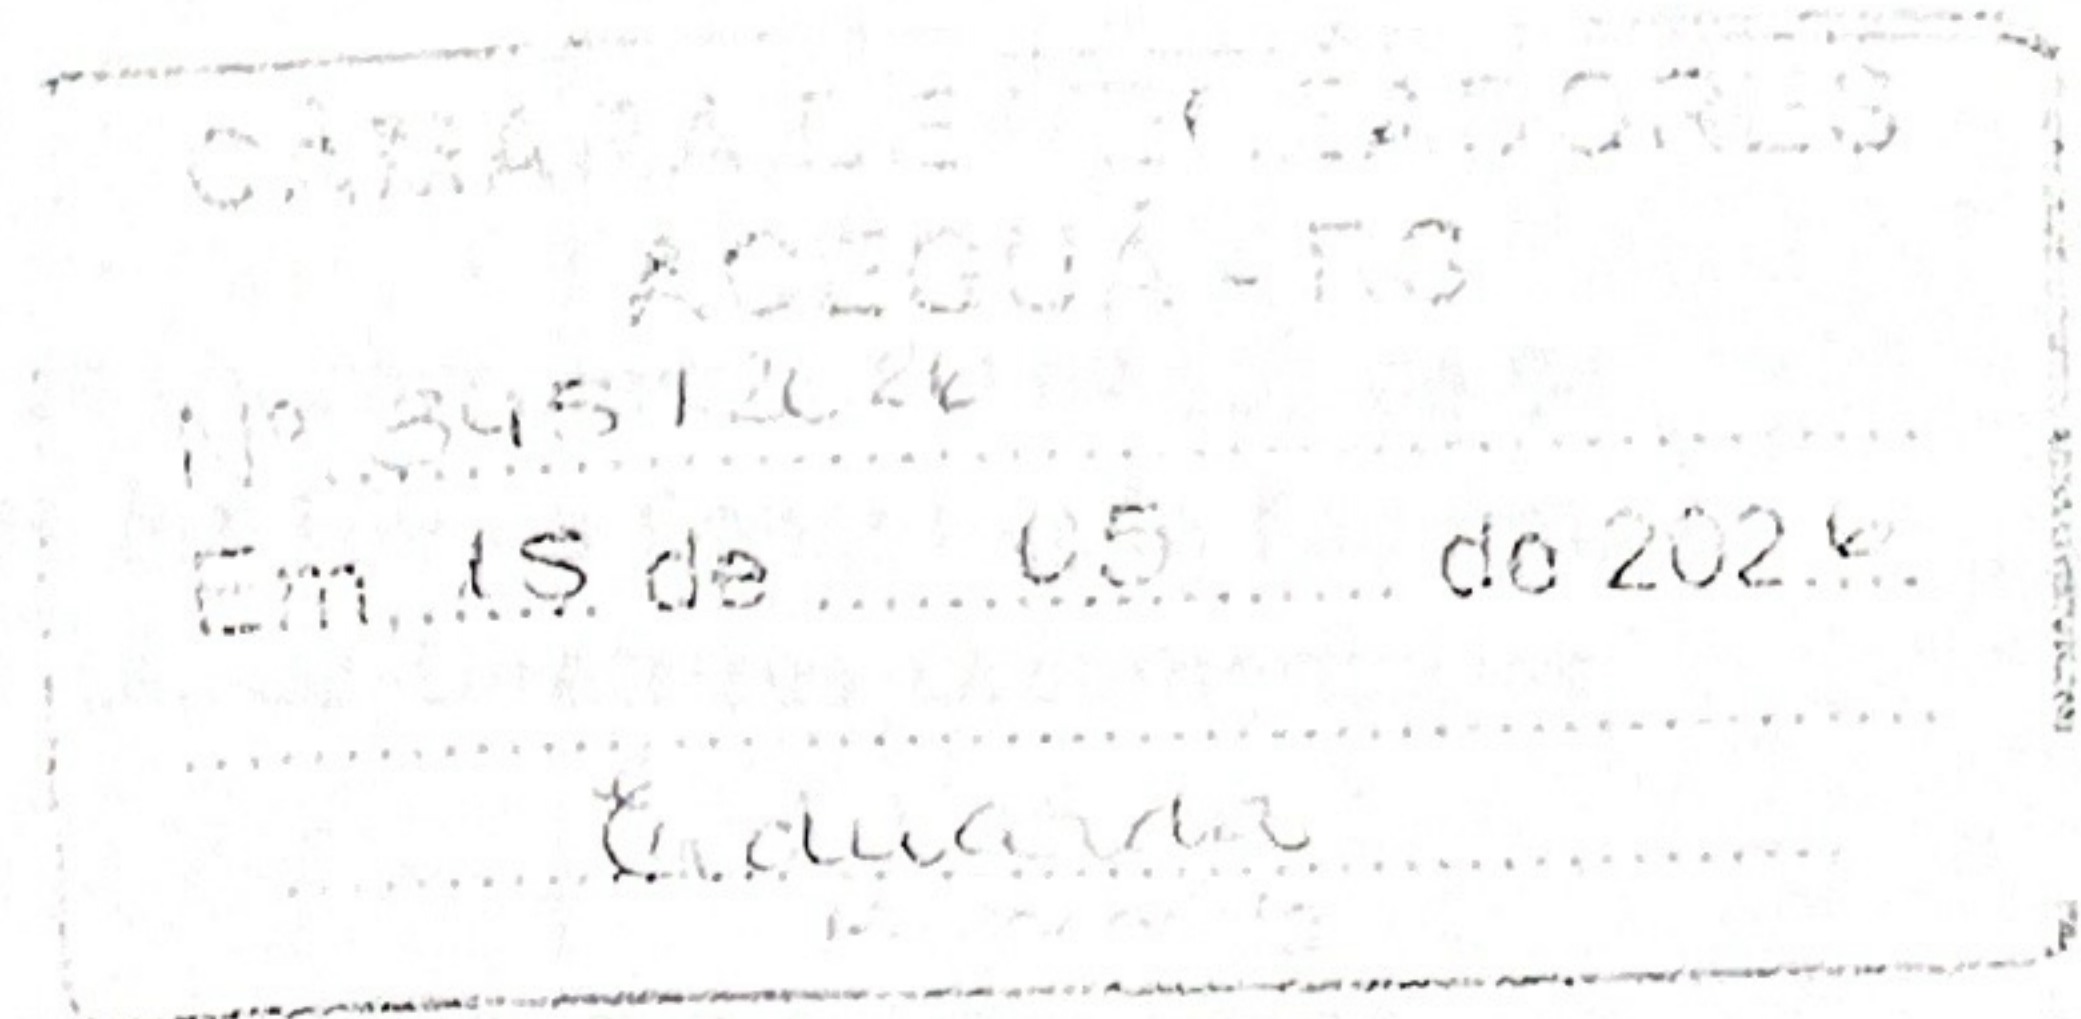 CÂMARA DE VEREADORES
ACEGUÁ - RS
Nº 345 / 2024
Em 15 de 05 de 2024
Eduarda